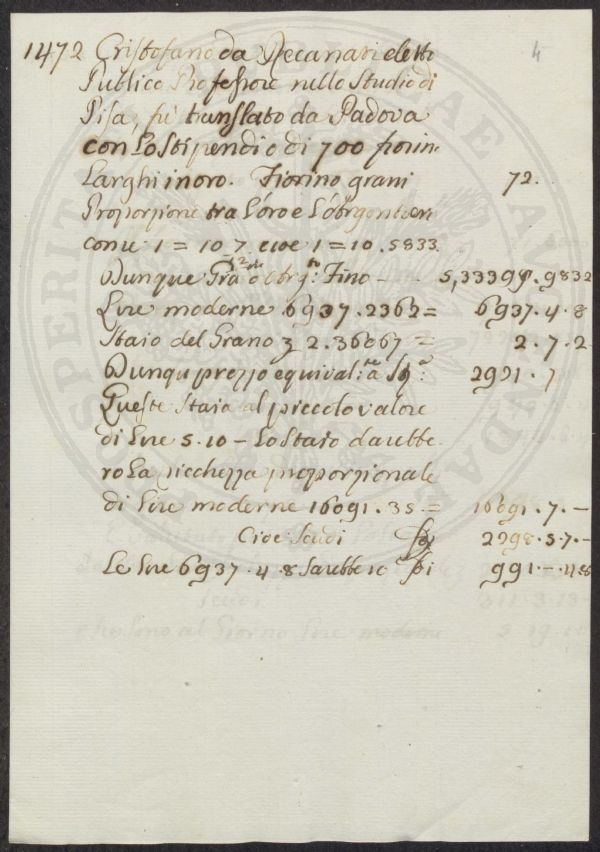 1472 Cristofano da Recanati eletto 4
Publico Professore nello Studio di
Pisa, fù translato da Padova
con lo Stipendio di 700 fiorin
Larghi in oro. Fiorino grani 72.
Proporzione tra l'oro e
1 = 10 7 cioè 1 = 10.5833
Dunque Fino — 5,33399.9832
Lire moderne 6937.2362 = 6937.4.8
Staio del Grano 2.36067 = 2.7.2
Dunqu prezzo equival:
Queste Staia al piccolo valore
di Lire 5.10 – Lo Staio darebbe
ro la ricchezza proporzionale
di Lire moderne 16091.35 = 16091.7.—
Cioè Scudi 2298.5.7.—
Le Lire 6937.4.8 Sarebbero 991.—.4.8
Scudi
che sono al Giorno Lire moderne